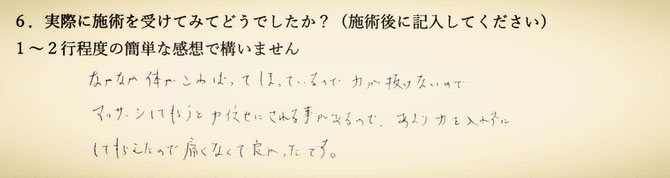 ６．実際に施術を受けてみてどうでしたか？（施術後に記入してください）
１～２行程度の簡単な感想で構いません
なかなか体がこわばってしまっているので力が抜けないので
マッサージしてもらうと力任せにされる事があるので、あまり力を入れずに
してもらえたので痛くなくて良かったです。